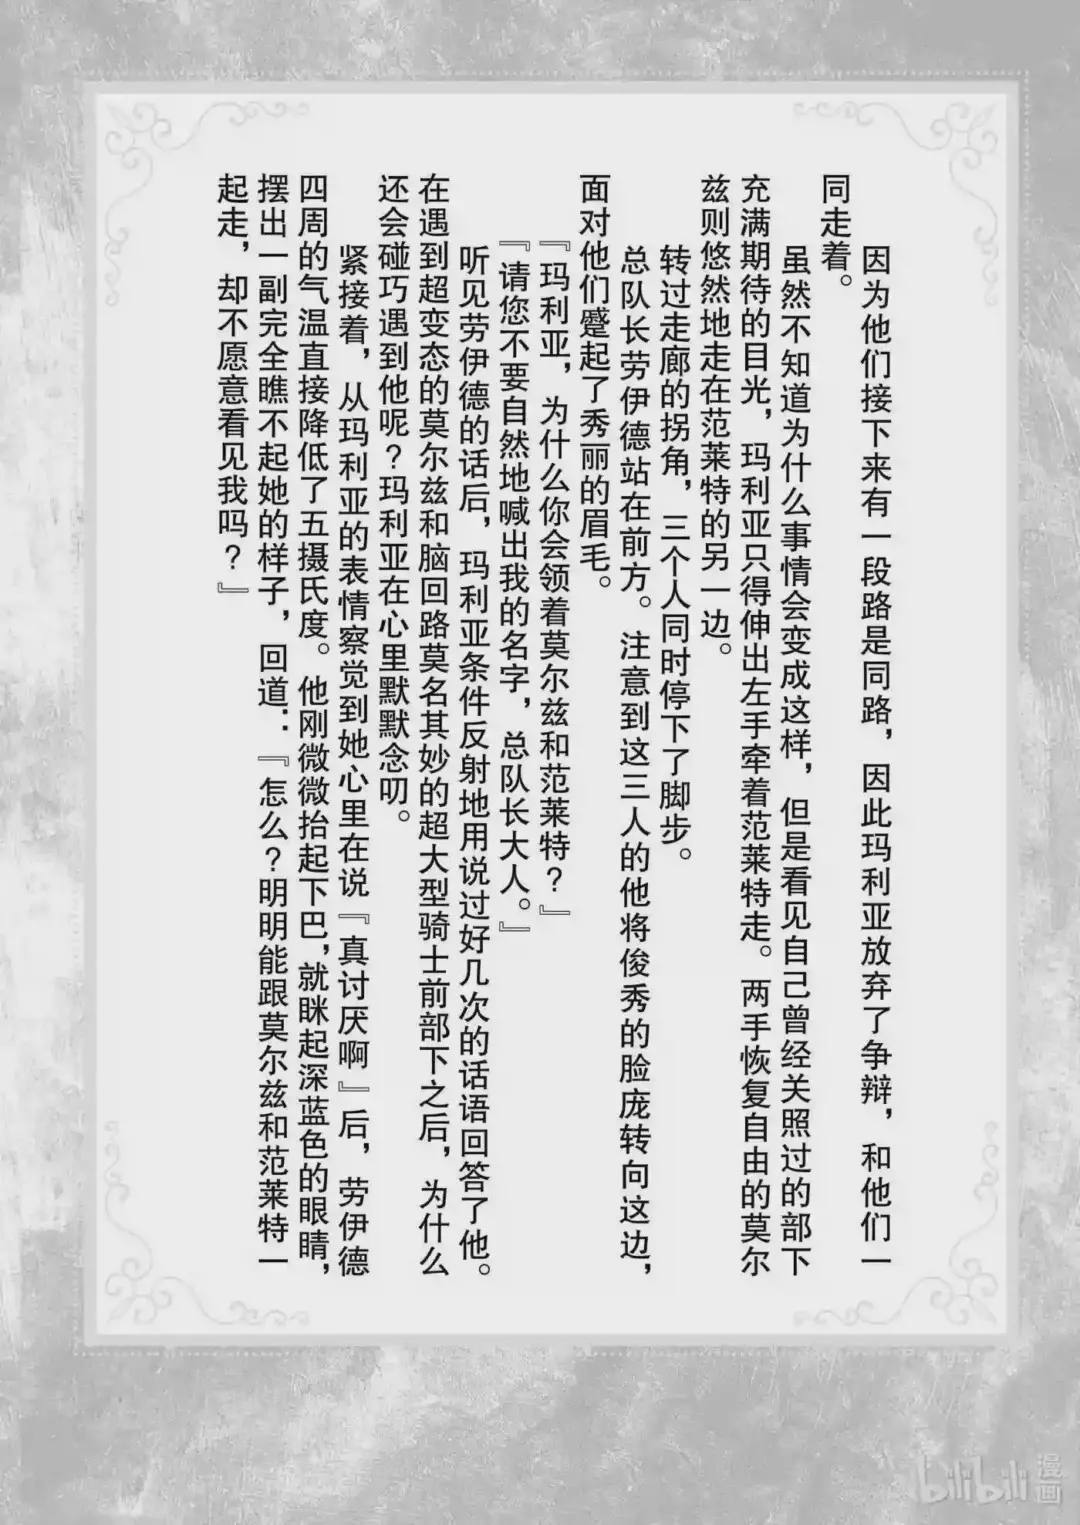 因为他们接下来有一段路是同路，因此玛利亚放弃了争辩，和他们一
同走着。
虽然不知道为什么事情会变成这样，但是看见自己曾经关照过的部下
充满期待的目光，玛利亚只得伸出左手牵着范莱特走。两手恢复自由的莫尔
兹则悠然地走在范莱特的另一边。
转过走廊的拐角，三个人同时停下了脚步。
总队长劳伊德站在前方。注意到这三人的他将俊秀的脸庞转向这边，
面对他们蹙起了秀丽的眉毛。
『玛利亚，为什么你会领着莫尔兹和范莱特？』
『请您不要自然地喊出我的名字，总队长大人。』
听见劳伊德的话后，玛利亚条件反射地用说过好几次的话语回答了他。
在遇到超变态的莫尔兹和脑回路莫名其妙的超大型骑士前部下之后，为什么
还会碰巧遇到他呢？玛利亚在心里默默念叨。
紧接着，从玛利亚的表情察觉到她心里在说『真讨厌啊』后，劳伊德
四周的气温直接降低了五摄氏度。他刚微微抬起下巴，就眯起深蓝色的眼睛，
摆出一副完全瞧不起她的样子，回道：『怎么？明明能跟莫尔兹和范莱特一
起走，却不愿意看见我吗？』
bilibili 漫画